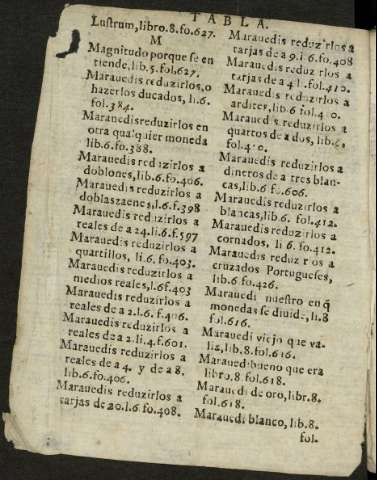 TABLA.
Lustrum, libro.8.fo.627.
M
Magnitudo porque se en
tiende, lib.5.fol.627.
Marauedis reduzirlos, o
hazerlos ducados, li.6.
fol.384.
Marauedis reduzirlos en
otra qualquier moneda
lib.6.fo.388.
Marauedis reduzirlos a
doblones, lib.6.fo.406.
Marauedis reduzirlos a
doblas zaenes, l.6.f.398
Marauedis reduzirlos a
reales de a 24.li.6.f.597
Marauedis reduzirlos a
quartillos, li.6.fo.403.
Marauedis reduzirlos a
medios reales, l.6f.403
Marauedis reduzirlos a
reales de a 2.l.6.f.406.
Marauedis reduzirlos a
reales de a 2.li.4.f.601.
Marauedis reduzirlos a
reales de a 4. y de a 8.
lib.6.fo.406.
Marauedis reduzirlos a
tarjas de a 20.l.6.fo.408.
Marauedis reduzirlos a
tarjas de a 9.i.6.fo.408
Marauedis reduzirlos a
tarjas de a 4.l.fol.410.
Marauedis reduzirlos a
ardites, lib.6 fol.410.
Marauedis reduzirlos a
quartos de a dos, lib.6,
fol.410.
Marauedis reduzirlos a
dineros de a tres blan-
cas, lib.6 fo.606.
Marauedis reduzirlos a
blancas, lib.6. fol.412.
Marauedis reduzirlos a
cornados, li 6.fo.412.
Marauedis reduzirlos a
cruzados Portugueses,
lib.6 fo.426.
Marauedi nuestro en q̃
monedas se diuide, li.8
fol.616.
Marauedi viejo que va-
lia, lib.8.fol.616.
Marauedi bueno que era
libro.8 fol.618.
Marauedi de oro, libr.8.
fol.618.
Marauedi blanco, lib.8.
fol.